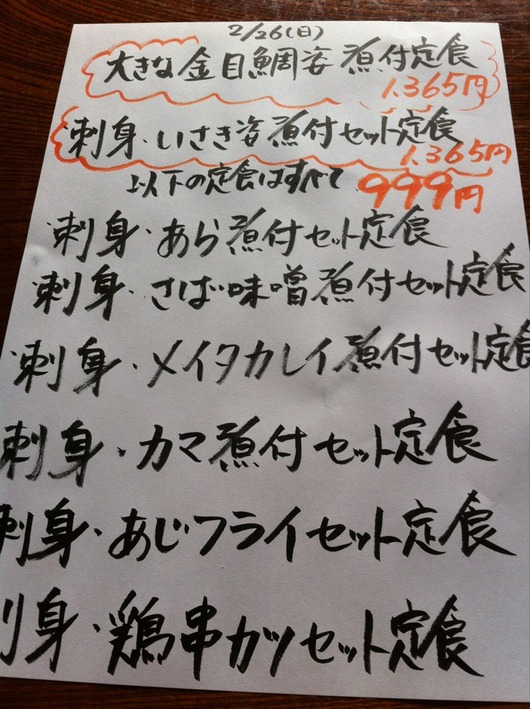 2/26(日)
大きな金目鯛姿煮付定食
1,365円
刺身・いさき姿煮付セット定食
1,365円
以下の定食はすべて 999円
刺身・あら煮付セット定食
刺身・さば味噌煮付セット定食
刺身・メイタカレイ煮付セット定食
刺身・カマ煮付セット定食
刺身・あじフライセット定食
刺身・鶏串カツセット定食